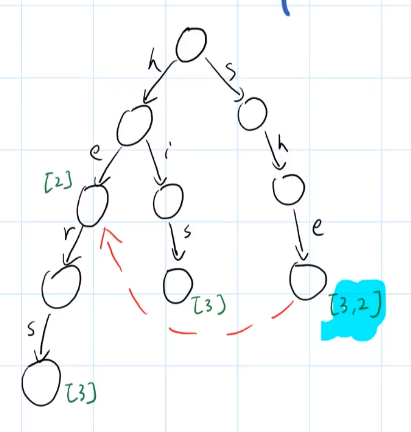 h s
e i h
[2]
r s e
[3] [3,2]
s
[3]